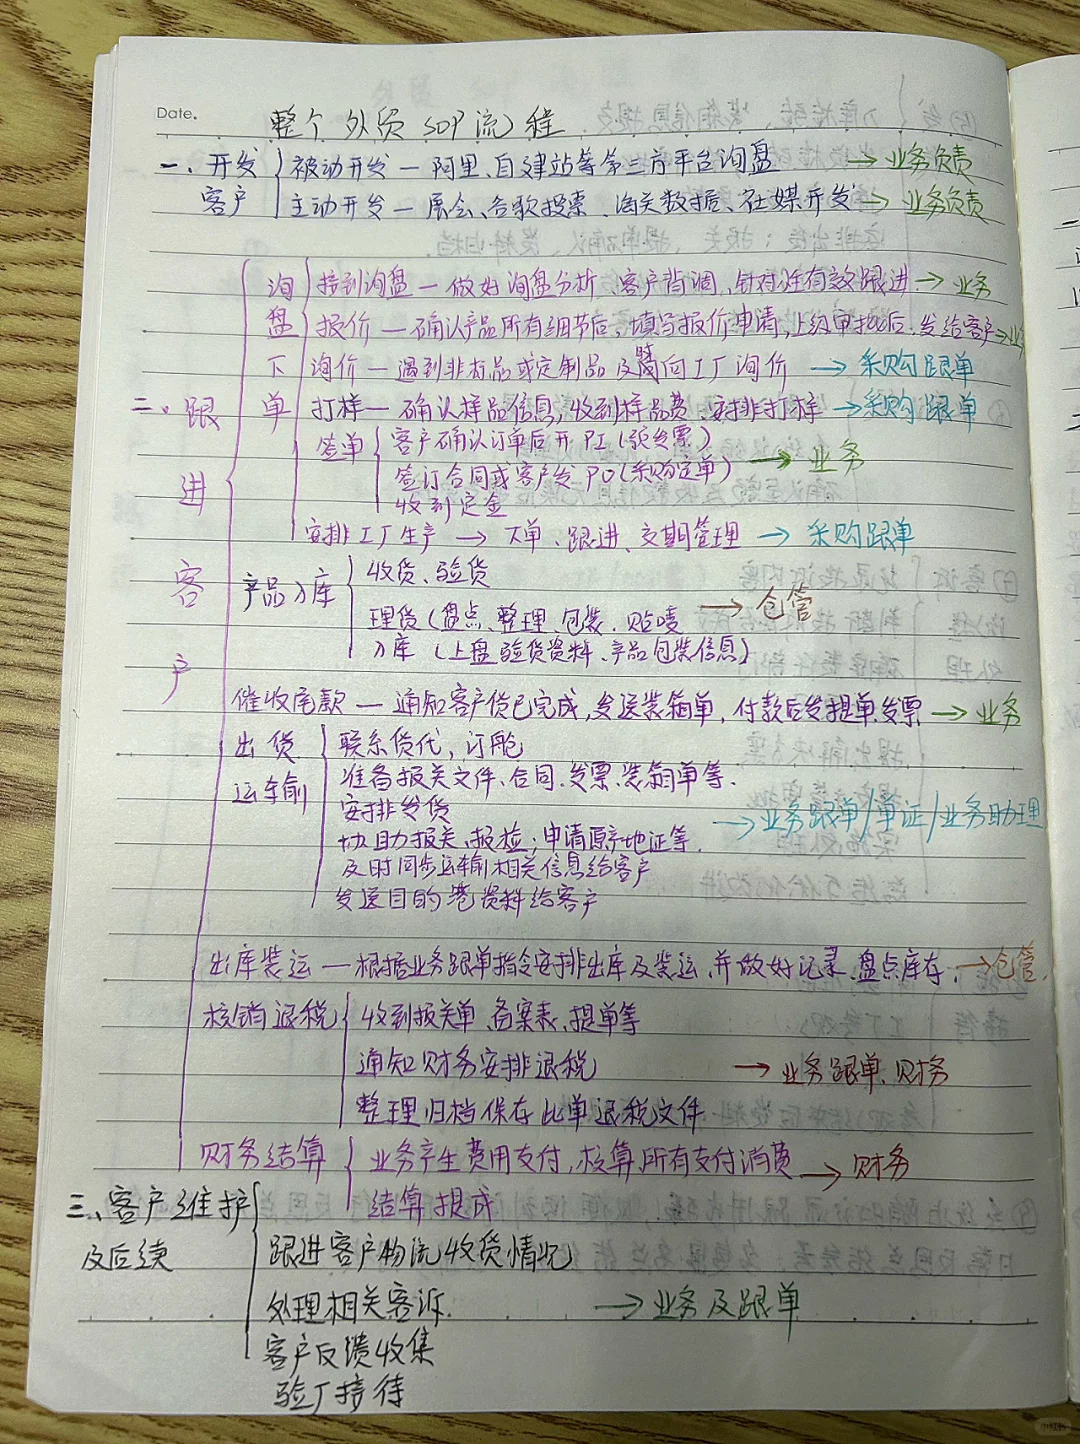 Date.
整个外贸SOP流程
一、开发客户
被动开发 — 阿里、自建站等第三方平台询盘 → 业务负责
主动开发 — 展会、谷歌搜索、海关数据、社媒开发 → 业务负责
二、跟进客户
询盘下单
接到询盘 — 做好询盘分析、客户背调,针对性有效跟进 → 业务
报价 — 确认产品所有细节后,填写报价申请,上级审批后,发给客户 → 业务
询价 — 遇到非标品或定制品及时向工厂询价 → 采购跟单
打样 — 确认样品信息,收到样品费,安排打样 → 采购跟单
签单
客户确认订单后开PI(形式发票)
签订合同或客户发PO(采购定单) → 业务
收到定金
安排工厂生产 → 下单、跟进、交期管理 → 采购跟单
产品入库
收货、验货
理货(盘点、整理、包装、贴唛 → 仓管
入库(上盘验货资料、产品包装信息)
催收尾款 — 通知客户货已完成,发送装箱单,付款后发提单发票 → 业务
出货运输
联系货代,订舱
准备报关文件、合同、发票、装箱单等.
安排发货
协助报关、报检;申请原产地证等. → 业务跟单/单证/业务助理
及时同步运输相关信息给客户
发送目的港资料给客户
出库装运 — 根据业务跟单指令安排出库及装运,并做好记录、盘点库存; → 仓管.
核销退税
收到报关单、备案表、提单等
通知财务安排退税 → 业务跟单、财务
整理归档保存此单退税文件
财务结算
业务产生费用支付,核算所有支付消费 → 财务
结算提成
三、客户维护及后续
跟进客户物流收货情况
处理相关客诉. → 业务及跟单
客户反馈收集
验厂接待
小红书